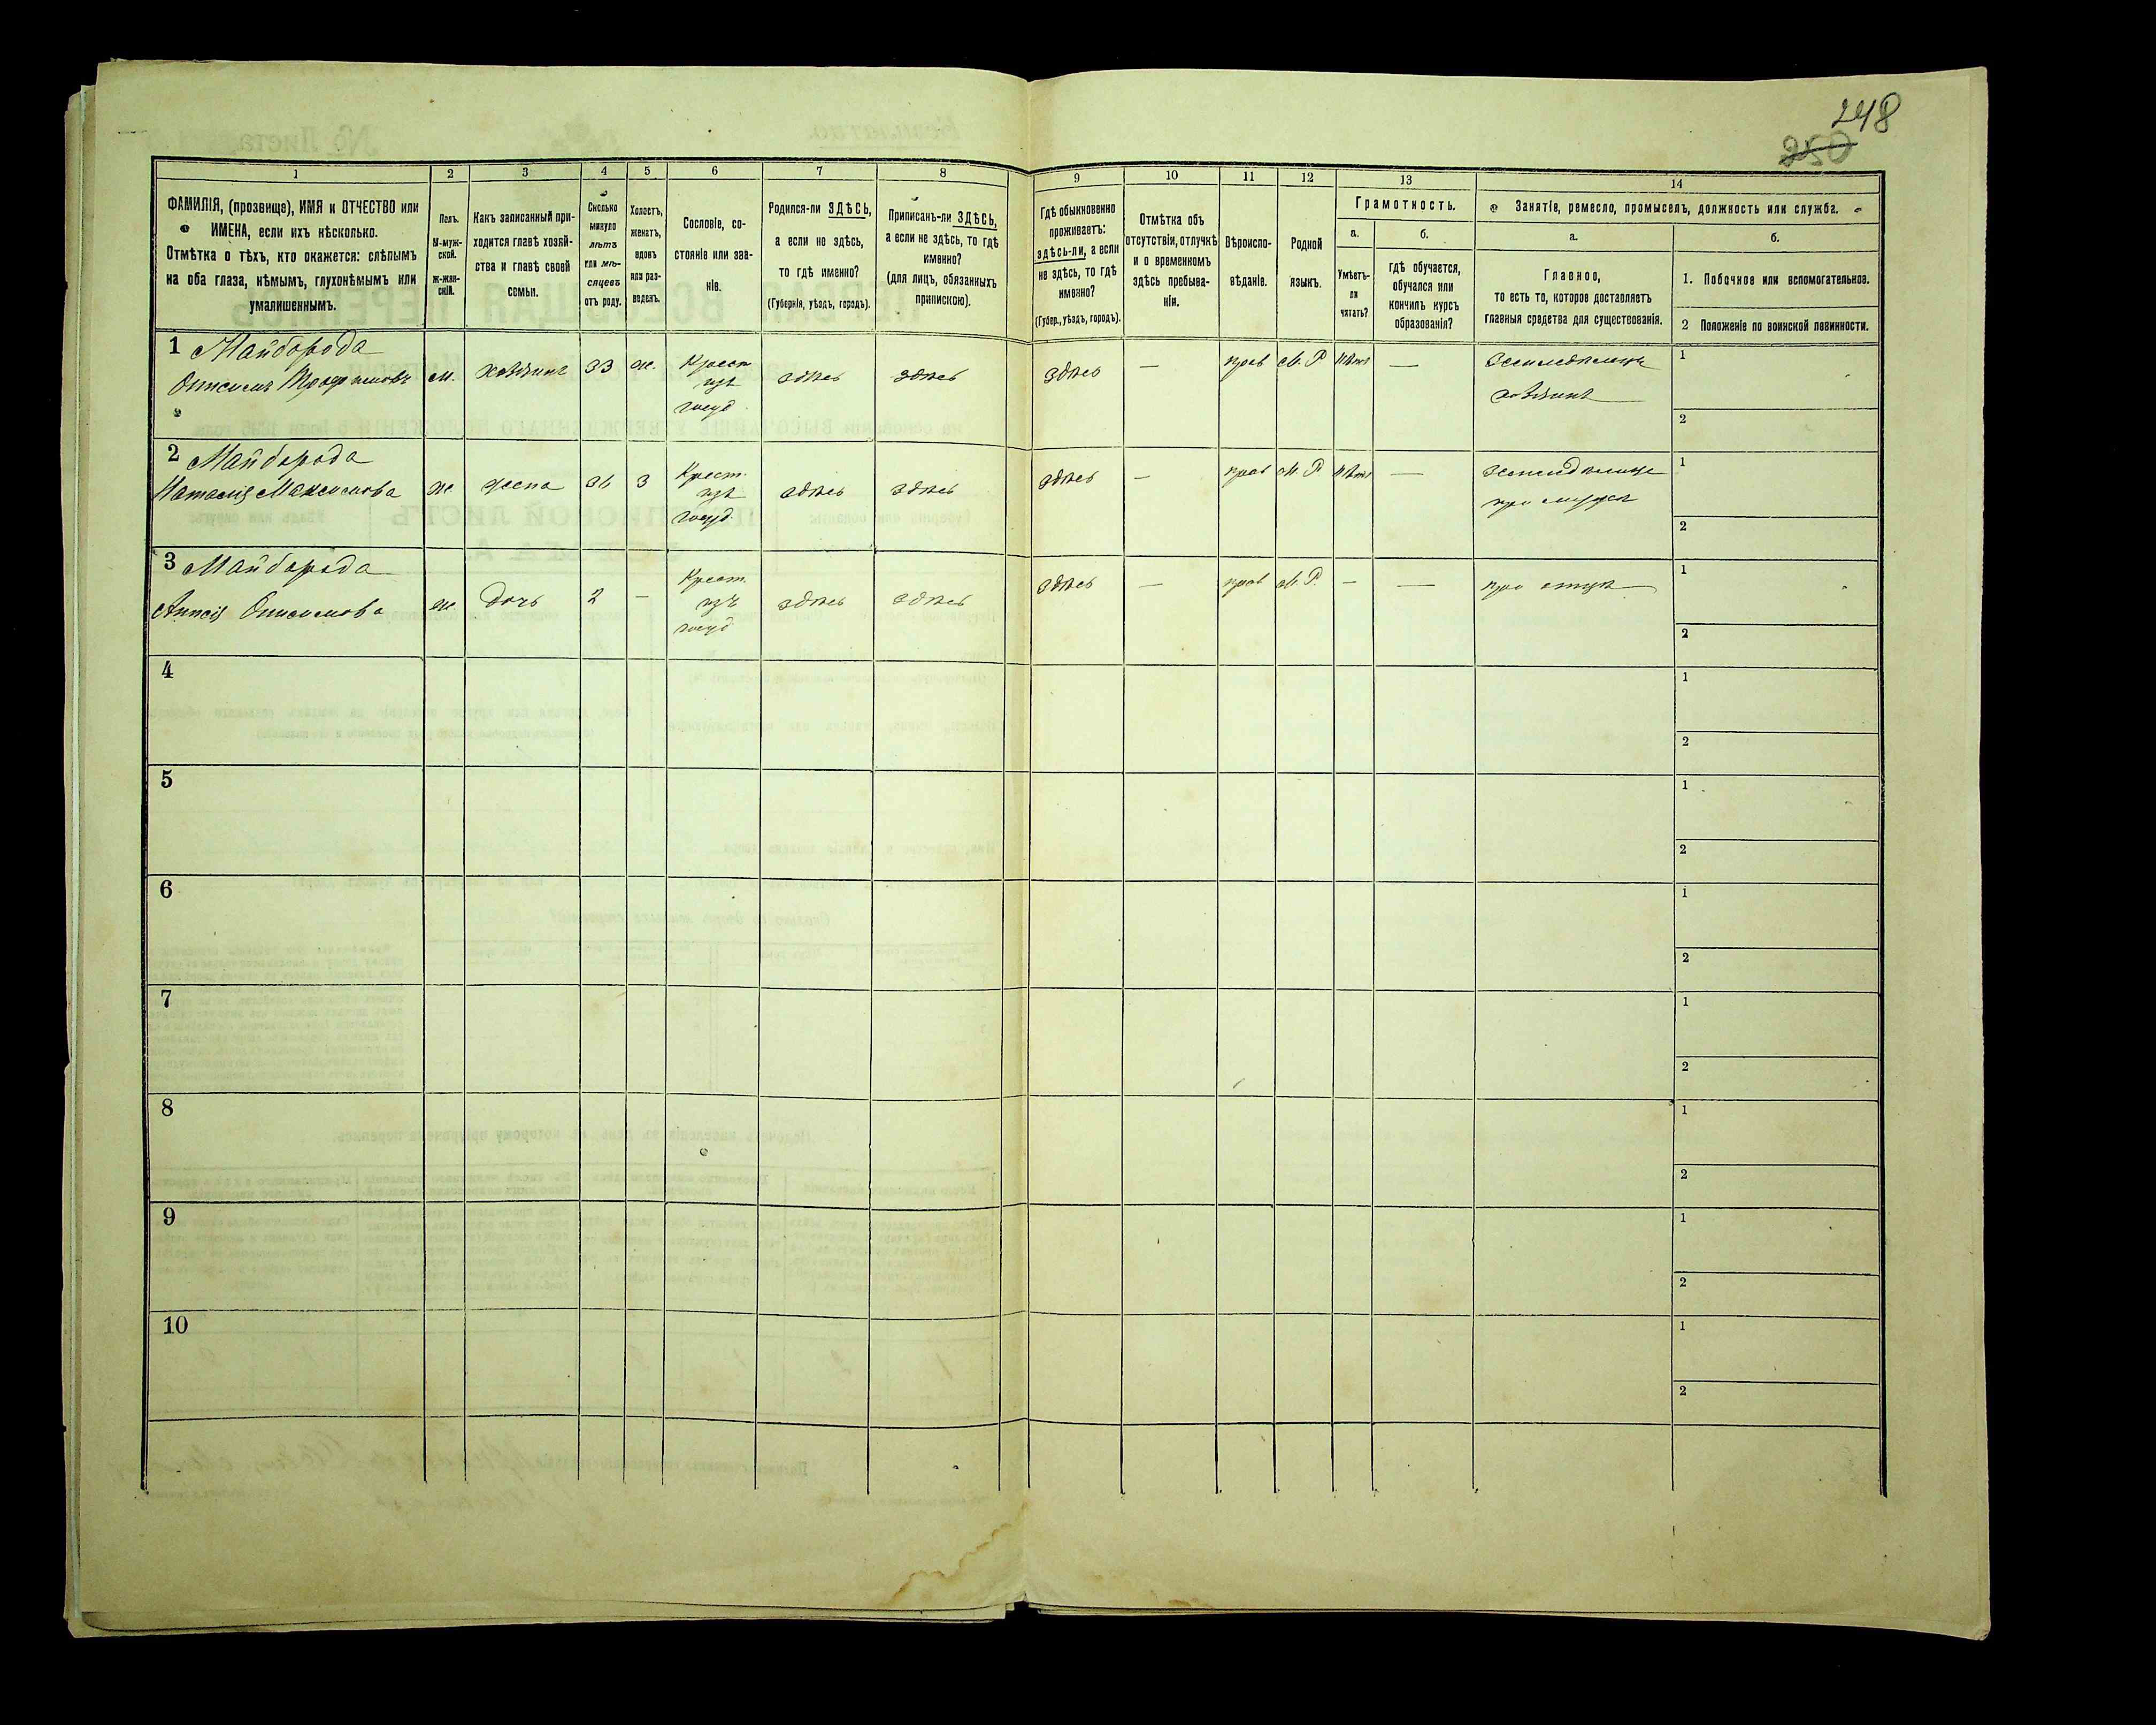 248
250
1
2
3
4
5
6
7
8
9
10
11
12
13
14
ФАМИЛІЯ, (прозвище), ИМЯ и ОТЧЕСТВО или
ИМЕНА, если ихъ нѣсколько.
Отмѣтка о тѣхъ, кто окажется: слѣпымъ
на оба глаза, нѣмымъ, глухонѣмымъ или
умалишеннымъ.
Полъ.
М-муж-
ской.
ж-жен-
скій.
Какъ записанный при-
ходится главѣ хозяй-
ства и главѣ своей
семьи.
Сколько
минуло
лѣтъ
или мѣ-
сяцевъ
отъ роду.
Холостъ,
женатъ,
вдовъ
или раз-
веденъ.
Сословіе, со-
стояніе или зва-
ніе.
Родился-ли ЗДѢСЬ,
а если не здѣсь,
то гдѣ именно?
(Губернія, уѣздъ, городъ).
Приписанъ-ли ЗДѢСЬ,
а если не здѣсь, то гдѣ
именно?
(для лицъ, обязанныхъ
припискою).
Гдѣ обыкновенно
проживаетъ:
здѣсь-ли, а если
не здѣсь, то гдѣ
именно?
(Губер., уѣздъ, городъ).
Отмѣтка объ
отсутствіи, отлучкѣ
и о временномъ
здѣсь пребыва-
ніи.
Вѣроиспо-
вѣданіе.
Родной
языкъ.
Грамотность.
а.
Умѣетъ-
ли
читать?
б.
гдѣ обучается,
обучался или
кончилъ курсъ
образованія?
Занятія, ремесло, промыселъ, должность или служба.
а.
Главное,
то есть то, которое доставляетъ
главныя средства для существованія.
б.
1. Побочное или вспомогательное.
2 Положеніе по воинской повинности.
1 Майборода
Онисимъ Трофимовъ
м.
хозяинъ
33
ж.
Крест
изъ
госуд
здѣсь
здѣсь
здѣсь
—
прав
М. Р
нѣтъ
—
Земледѣлецъ
хозяинъ
1
2
2 Майборода
Наталія Максимова
ж.
жена
36
З
Крест.
изъ
госуд.
здѣсь
здѣсь
здѣсь
—
прав
М. Р.
нѣтъ
—
при мужѣ
1
2
3 Майборода
Онисимова
ж.
дочь
2
—
Крест.
изъ
госуд
здѣсь
здѣсь
здѣсь
—
прав
М. Р.
—
—
при отцѣ
1
2
4
1
2
5
1
2
6
1
2
7
1
2
8
1
2
9
1
2
10
1
2